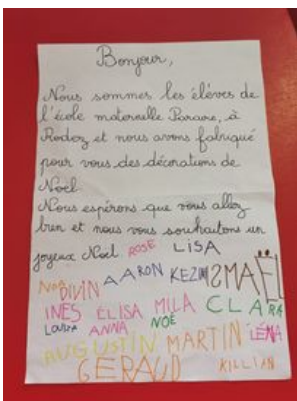 Bonjour,
Nous sommes les élèves de
l'école maternelle Paraire, à
Rodez et nous avons fabriqué
pour vous des décorations de
Noël.
Nous espérons que vous allez
bien et nous vous souhaitons un
joyeux Noël. ROSE LISA
NOÉ DIVIN AARON KEZIM ISMAËL
INES ELISA MILA CLARA
Louisa ANNA NOÉ
AUGUSTIN MARTIN LÉNA
GERAUD KILLIAN